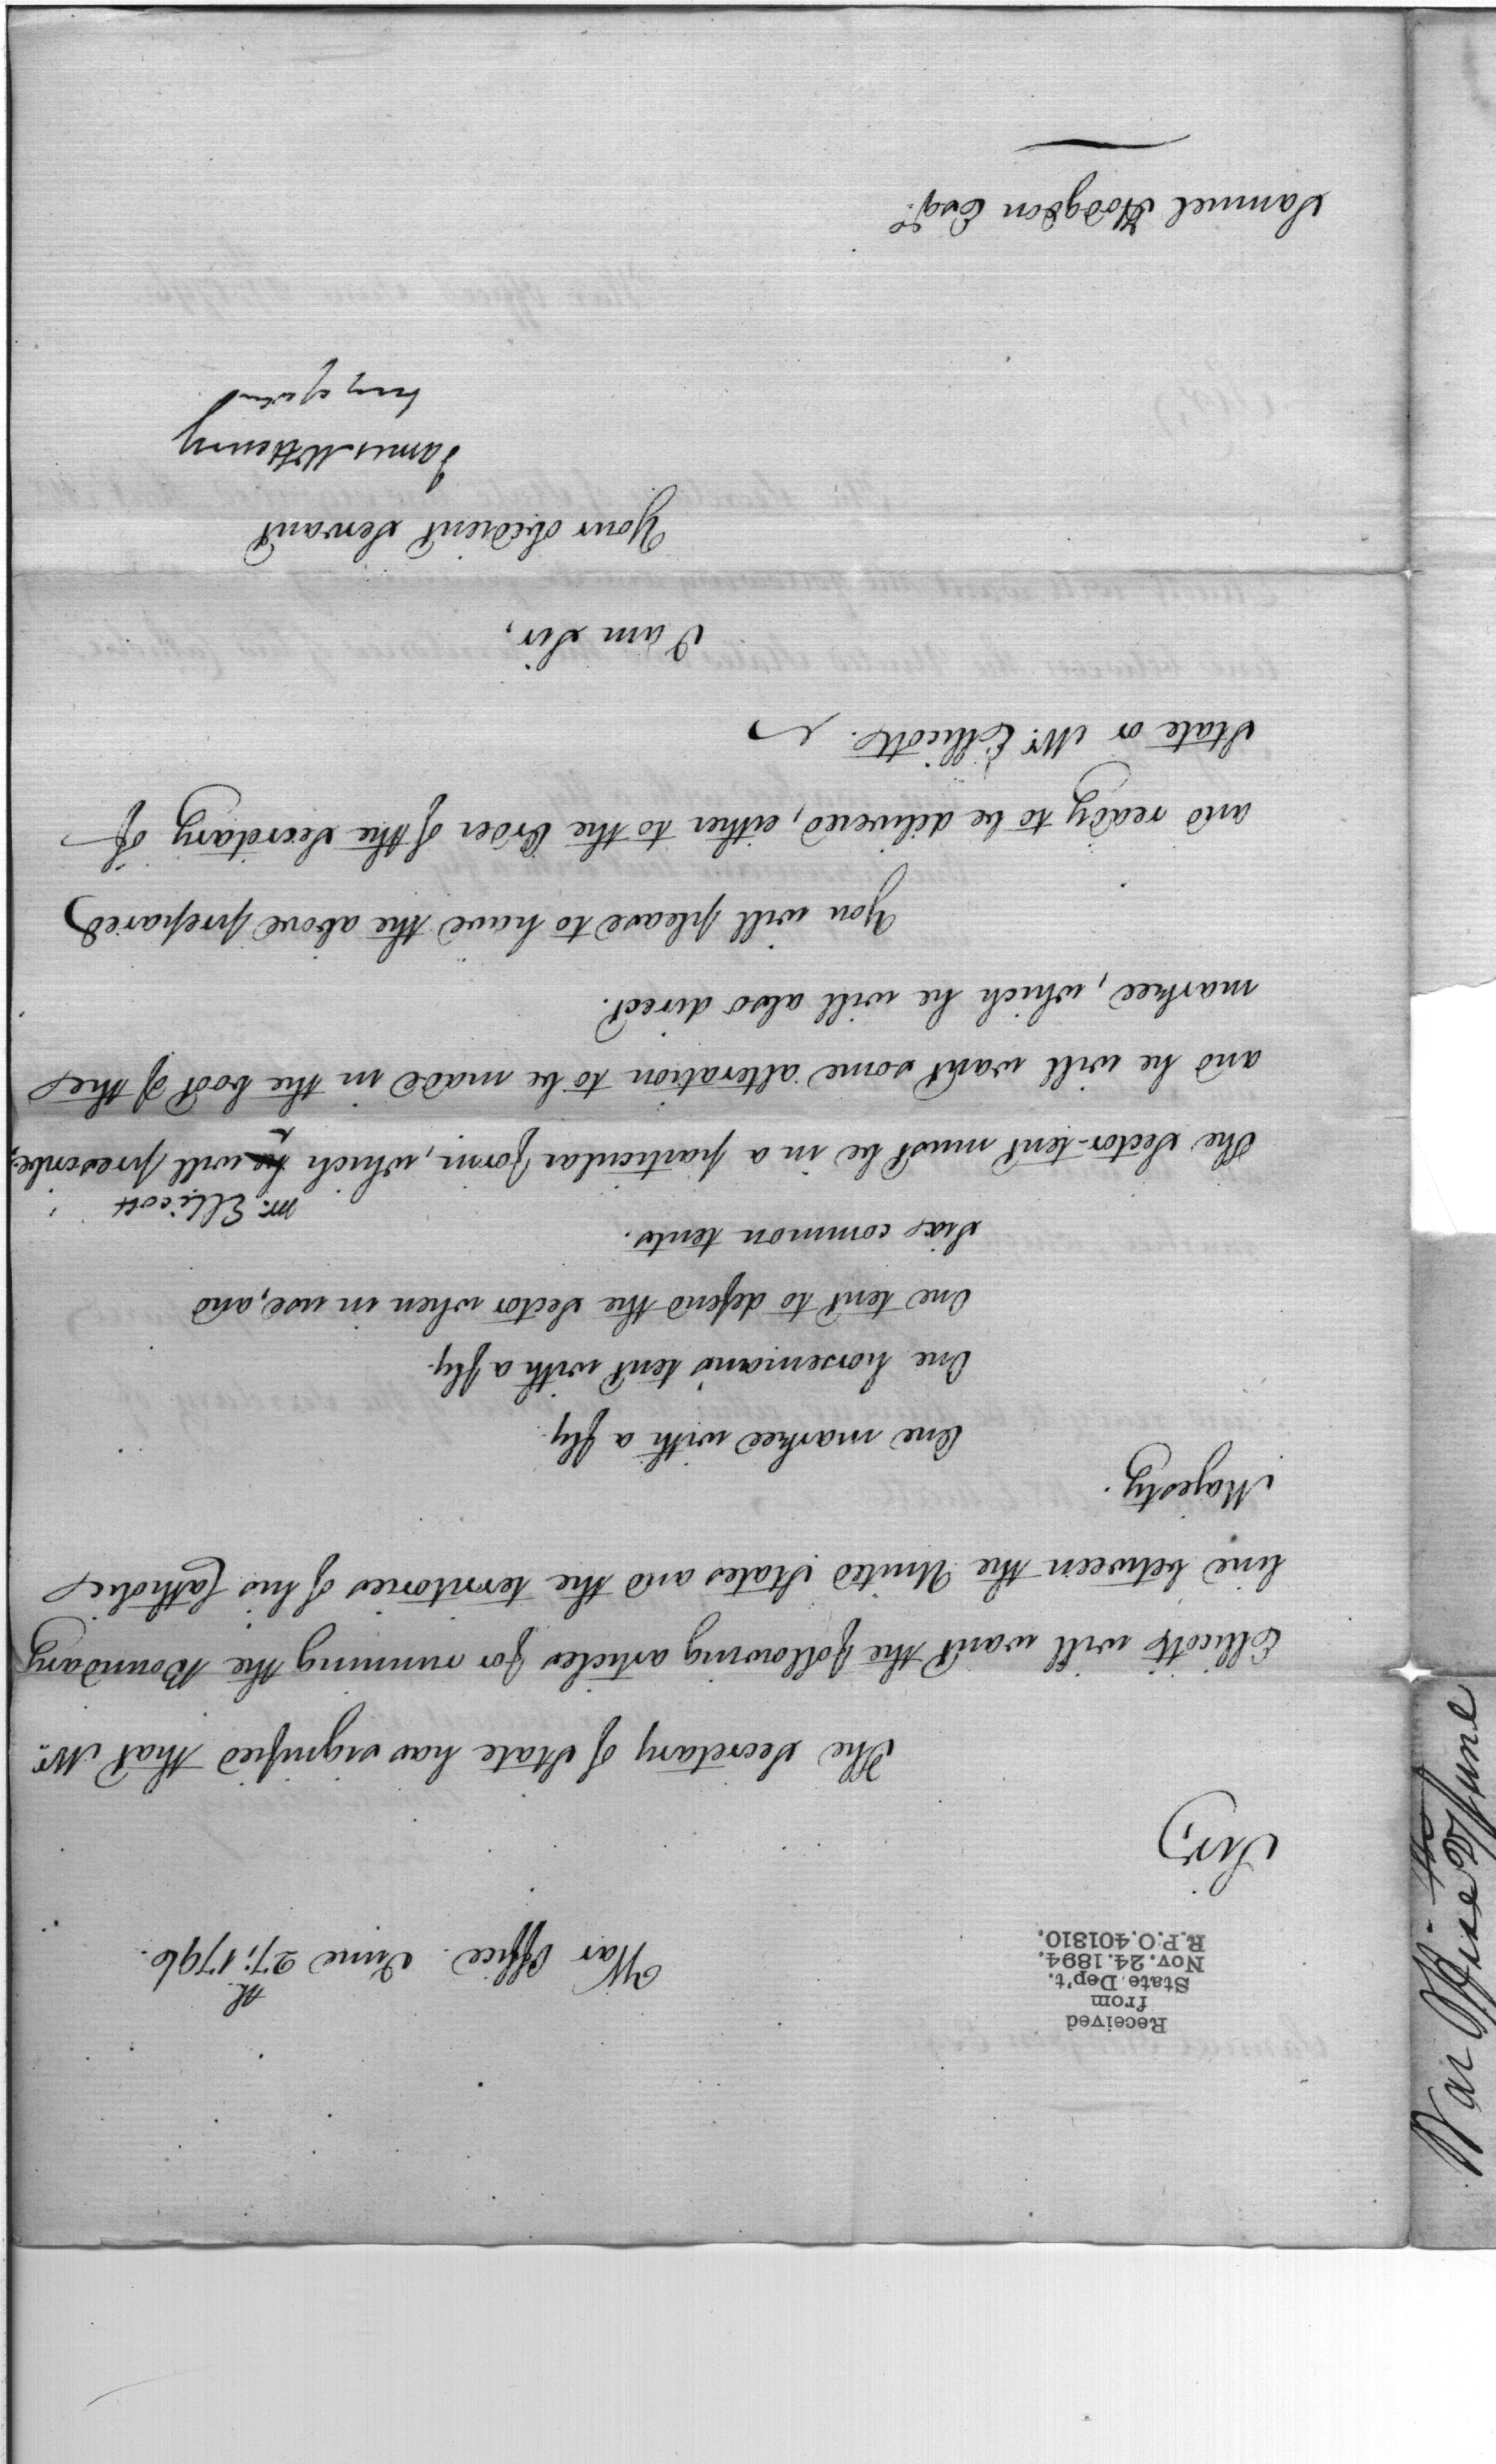 Received
from
State Dep't.
Nov. 24. 1894.
R.P.O. 401810.
War Office June 27th. 1796.
Sir,
The Secretary of State has signified that Mr.
Ellicott will want the following articles for running the Boundary
line between the United States and the territories of his Catholic
Majesty.
One markee with a fly.
One horseman's tent with a fly.
One tent to defend the Sector when in use, and
Six common tents.
Mr. Ellicott
The Sector-tent must be in a particular form, which he will prescribe,
and he will want some alteration to be made in the boot of the
markee, which he will also direct.
You will please to have the above prepared
and ready to be delivered, either to the Order of the Secretary of
State or Mr. Ellicott.
I am Sir,
Your obedient Servant
James McHenry
Secy of war
Samuel Hodgdon Esqr.
War Office 27th June